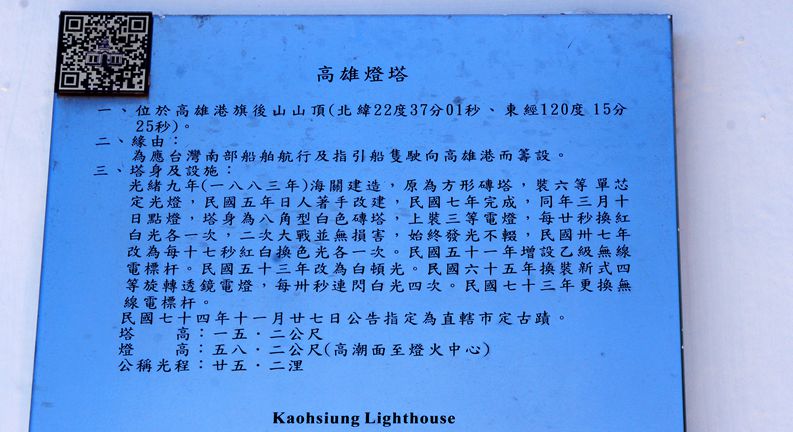 高雄燈塔
一、位於高雄港旗後山山頂(北緯22度37分01秒、東經120度 15分
25秒)。
二、緣由：
為應台灣南部船舶航行及指引船隻駛向高雄港而籌設。
三、塔身及設施：
光緒九年(一八八三年)海關建造，原為方形磚塔，裝六等單芯
定光燈，民國五年日人著手改建，民國七年完成，同年三月十
日點燈，塔身為八角型白色磚塔，上裝三等電燈，每廿秒換紅
白光各一次，二次大戰並無損害，始終發光不輟，民國卅七年
改為每十七秒紅白換色光各一次。民國五十一年增設乙級無線
電標杆。民國五十三年改為白頓光。民國六十五年換裝新式四
等旋轉透鏡電燈，每卅秒連閃白光四次。民國七十三年更換無
線電標杆。
民國七十四年十一月廿七日公告指定為直轄市定古蹟。
塔　　高：一五．二公尺
燈　　高：五八．二公尺(高潮面至燈火中心)
公稱光程：廿五．二浬
Kaohsiung Lighthouse